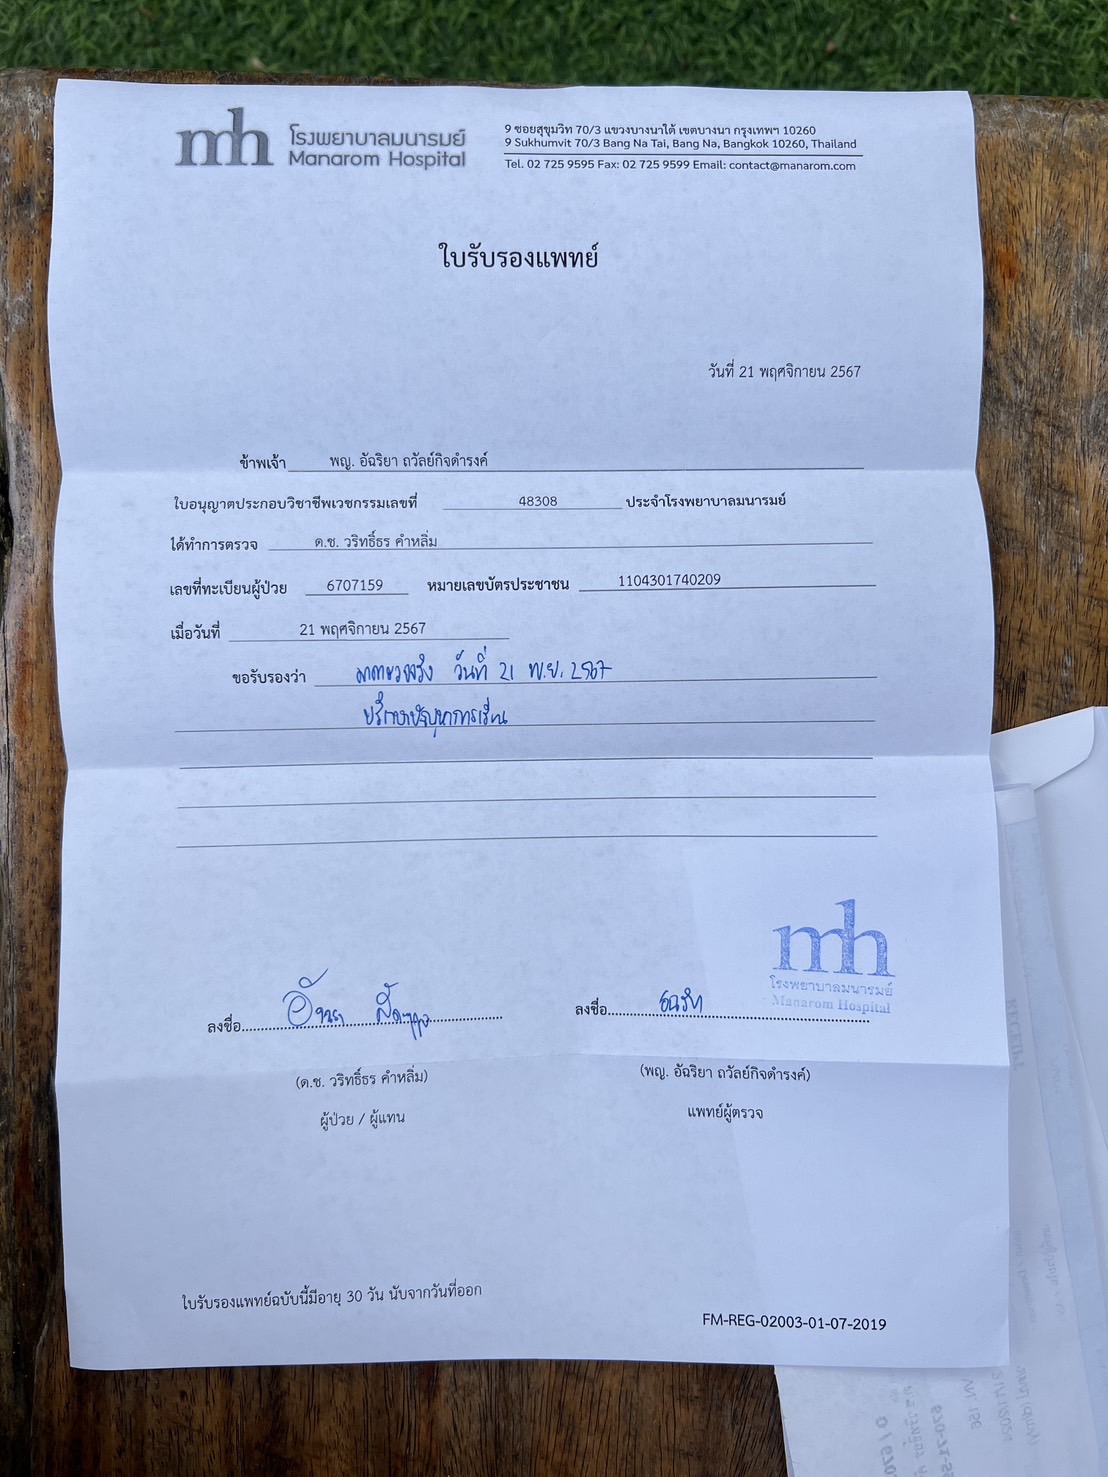 mh โรงพยาบาลมนารมย์
Manarom Hospital
9 ซอยสุขุมวิท 70/3 แขวงบางนาใต้ เขตบางนา กรุงเทพฯ 10260
9 Sukhumvit 70/3 Bang Na Tai, Bang Na, Bangkok 10260, Thailand
Tel. 02 725 9595 Fax: 02 725 9599 Email: contact@manarom.com
ใบรับรองแพทย์
วันที่ 21 พฤศจิกายน 2567
ข้าพเจ้า พญ. อัฉริยา ถวัลย์กิจดำรงค์
ใบอนุญาตประกอบวิชาชีพเวชกรรมเลขที่ 48308 ประจำโรงพยาบาลมนารมย์
ได้ทำการตรวจ ด.ช. วริทธิ์ธร คำหลิ่ม
เลขที่ทะเบียนผู้ป่วย 6707159 หมายเลขบัตรประชาชน 1104301740209
เมื่อวันที่ 21 พฤศจิกายน 2567
ขอรับรองว่า มาตรวจจริง วันที่ 21 พ.ย. 2567
ปรึกษาปัญหาการเรียน
mh
โรงพยาบาลมนารมย์
Manarom Hospital
ลงชื่อ
ลงชื่อ
(ด.ช. วริทธิ์ธร คำหลิ่ม)
(พญ. อัฉริยา ถวัลย์กิจดำรงค์)
ผู้ป่วย / ผู้แทน
แพทย์ผู้ตรวจ
ใบรับรองแพทย์ฉบับนี้มีอายุ 30 วัน นับจากวันที่ออก
FM-REG-02003-01-07-2019